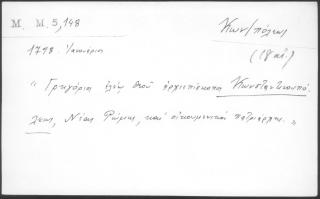 M. M. 5, 148
Κων/πόλεως
(18 αἰ.)
1798. Ἰανουάριος
" Γρηγόριος ἐλέῳ Θεοῦ ἀρχιεπίσκοπος Κωνσταντινουπό-
λεως, Νέας Ῥώμης, καὶ οἰκουμενικὸς πατριάρχης. "